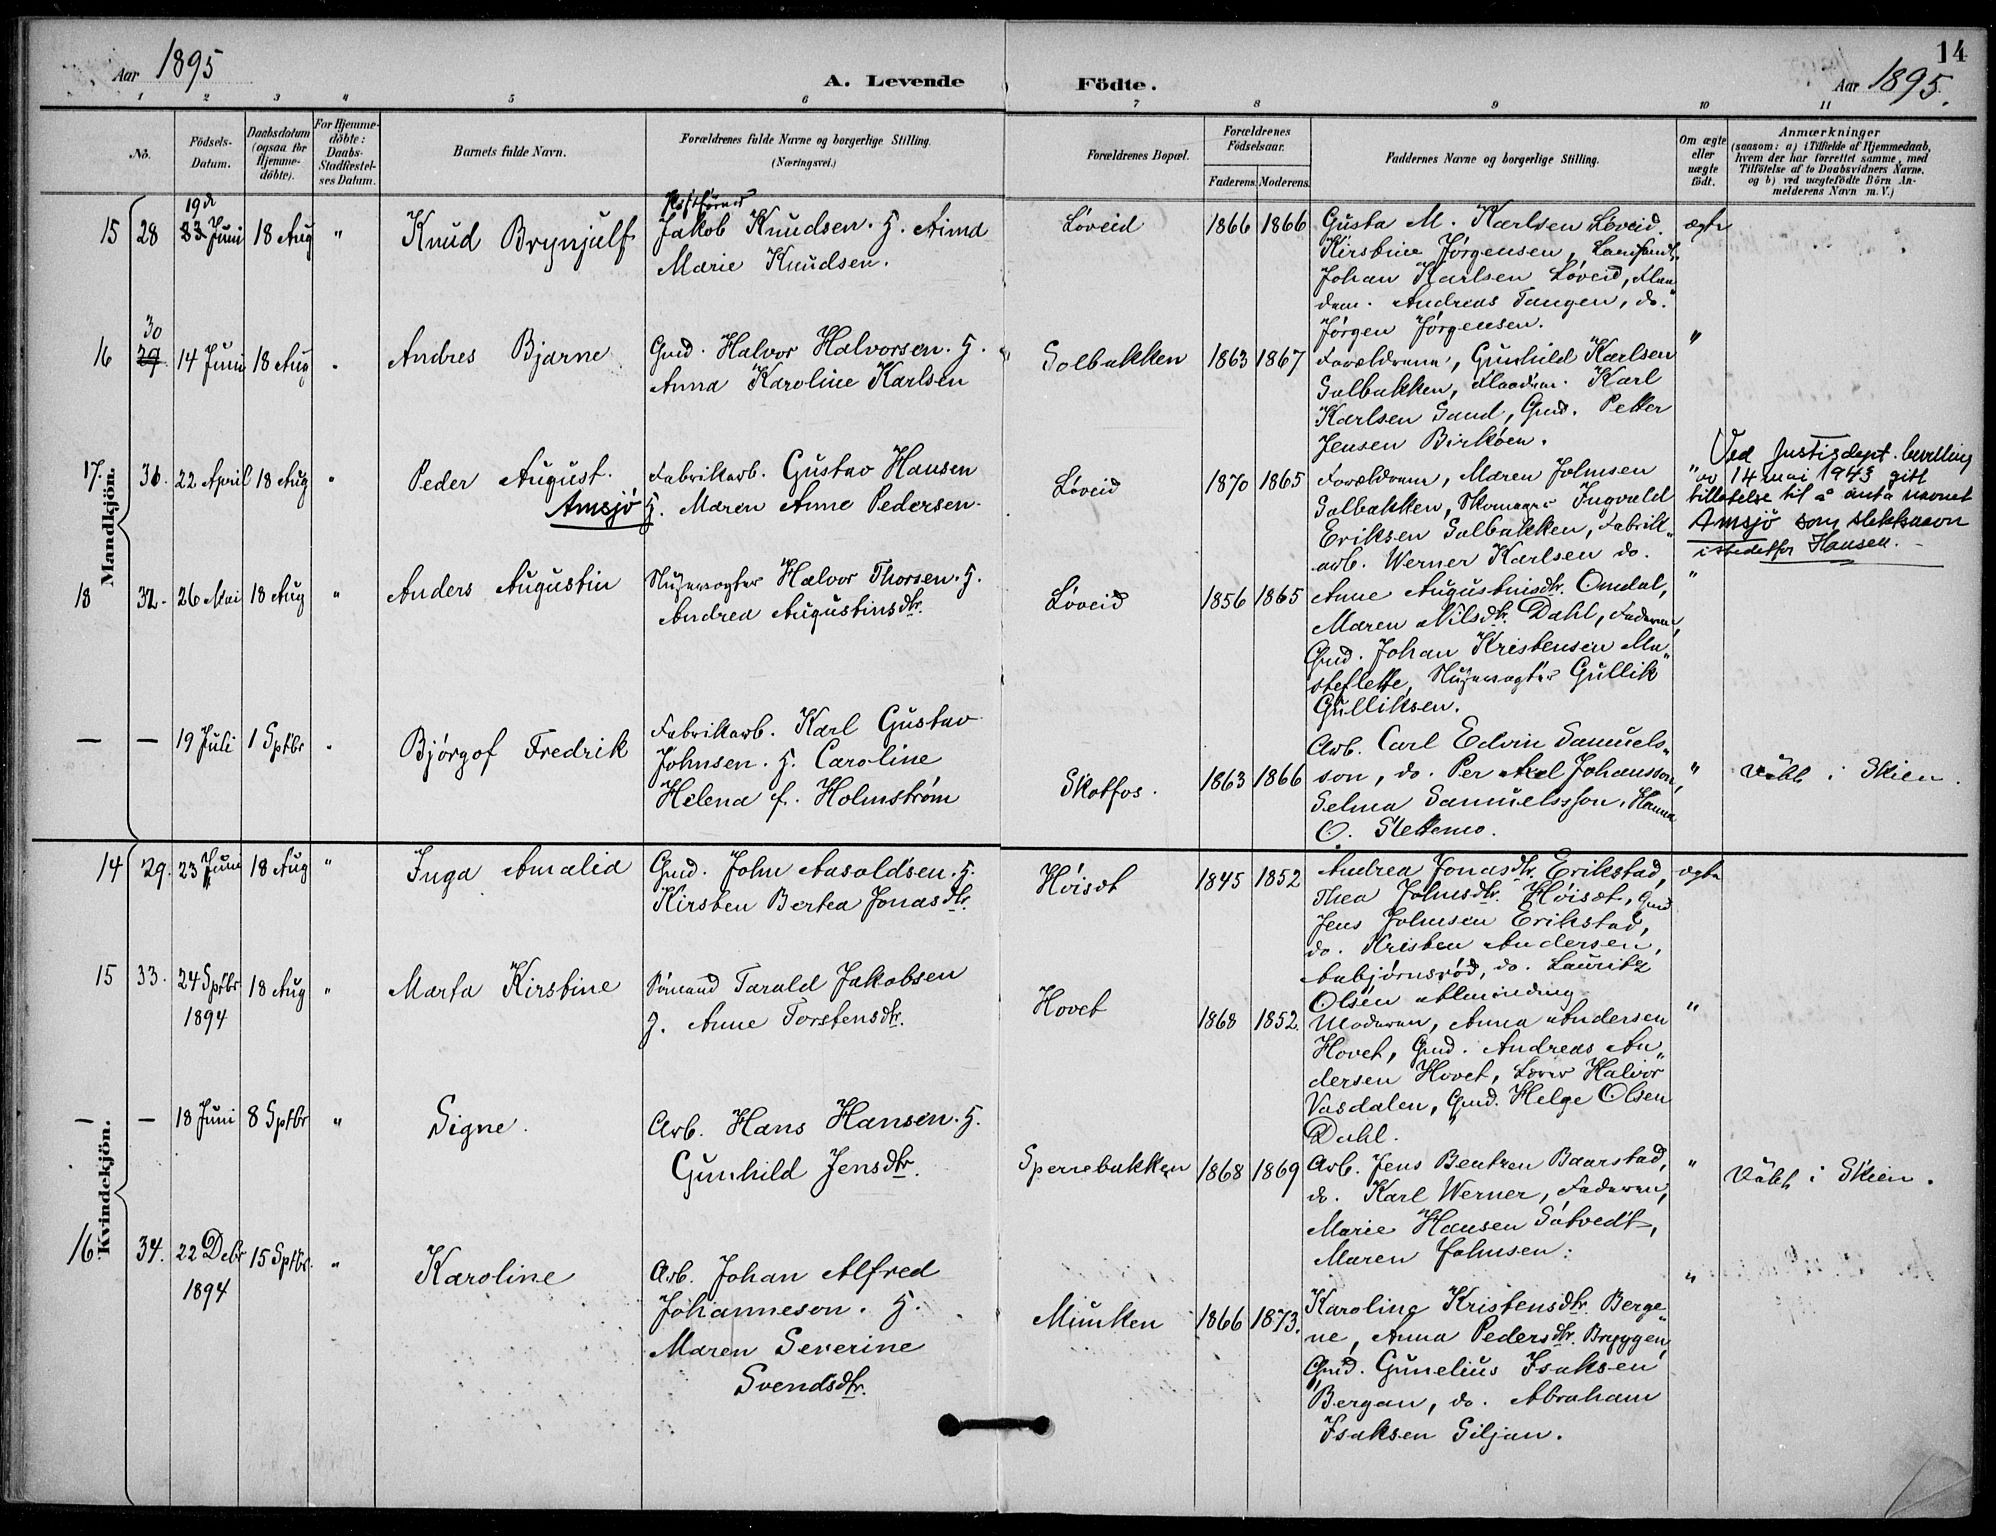 14
Aar 1895
A. Levende Födte.
Aar 1895.
1 2 3 4 5 6 7 8 9 10 11
No.
Födsels-
Datum.
Daabsdatum
(ogsaa for
Hjemme-
döbte).
For Hjemme-
döbte:
Daabs-
Stadfæstel-
ses Datum.
Barnets fulde Navn.
Forældrenes fulde Navne og borgerlige Stilling.
(Næringsvei.)
Forældrenes Bopæl.
Forældrenes
Födselsaar.
Faderens. Moderens.
Faddernes Navne og borgerlige Stilling.
Om ægte
eller
uægte
födt.
Anmærkninger
(saasom: a) i Tilfælde af Hjemmedaab,
hvem der har forrettet samme, med
Tilföielse af to Daabsvidners Navne.
og b) ved uægtefödte Börn An-
melderens Navn m. V.)
Mandkjön.
15 28 19de Juni 18 Aug " Knud Brynjulf
Jakob Knudsen. H. Aima
Marie Knudsen.
Løveid 1866 1866
Gusta M. Karlsen Løveid.
Kirstine Jørgensen,
Johan Karlsen Løveid,
Andreas Tangen, do.
Jørgen Jørgensen.
ægte
16 30 29 14 Juni 18 Aug " Andres Bjarne
Gmd. Halvor Halvorsen. H.
Anna Karoline Karlsen
Solbakken 1863 1867
Forældrene, Gunhild Karlsen
Solbakken, Karl
Karlsen Sand, Gmd. Petter
Jensen Birköen.
"
17. 31. 22 April 18 Aug " Peder August.
Amsjö
Fabrikarb. Gustav Hansen
H. Maren Anne Pedersen.
Løveid 1870 1865
Forældrene, Maren Johnsen
Solbakken, Skomager Ingvald
Eriksen Solbakken, Fabrik-
arb. Werner Karlsen do.
"
Ved Justisdept. bevilling
av 14 mai 1943 gitt
tillatelse til å anta navnet
Amsjö som slektsnavn
istedetfor Hansen.
18 32. 26 Mai 18 Aug " Anders Augustin
Slusevogter Halvor Thorsen. H.
Andrea Augustinsdtr.
Løveid 1856 1865
Anne Augustinsdtr. Omdal,
Maren Nilsdtr. Dahl, Faderen,
Gmd. Johan Kristensen Ma-
steflette, Slusevogter Gullik
Gulliksen.
"
— — 19 Juli 1 Sptbr " Bjórgof Fredrik
Fabrikarb. Karl Gustav
Johnsen. H. Caroline
Helena f. Holmstrøm
Skotfos. 1863 1866
Arb. Carl Edvin Samuels-
son, do. Per Axel Johansson,
Selma Samuelsson, Hanna
O. Slettemo.
"
Döbt i Skien.
Kvindekjön.
14 29. 23 Juni 18 Aug " Inga Amalia
Gmd. John Aasoldsen. H.
Kirsten Bertea Jonasdtr.
Höisæt 1845 1852
Andrea Jonasdtr. Erikstad,
Thea Johnsdtr. Höisæt, Gmd
Jens Johnsen Erikstad,
do. Kristen Andersen,
Aabjörnsröd, do. Lauritz
Olsen Almönding
ægte
15 33. 24 Sptbr
1894
18 Aug " Marta Kirstine
Sømand Tarald Jakobsen
H. Anne Torstensdtr.
Hovet 1868 1852.
Moderen, Anna Andersen
Hovet, Gmd. Andreas An-
dersen Hovet, Lærer Halvor
Vasdalen, Gmd. Helge Olsen
Dahl.
"
— — 18 Juni 8 Sptbr " Signe.
Arb. Hans Hansen. H.
Gunhild Jensdtr.
Sperrebakken 1868 1869
Arb. Jens Bentzen Baarstad,
do. Karl Werner, Faderen,
Marie Hansen Sötvedt,
Maren Johnsen.
"
Döbt i Skien.
16 34. 22 Debr
1894
15 Sptbr. " Karoline
Arb. Johan Alfred
Johanneson. H.
Maren Severine
Svendsdtr.
Munken 1866 1873.
Karoline Kristensdtr. Berge-
ne, Anna Pedersdtr. Bryggen,
Gmd. Gunelius Isaksen
Bergan, do. Abraham
Isaksen Siljan.
"